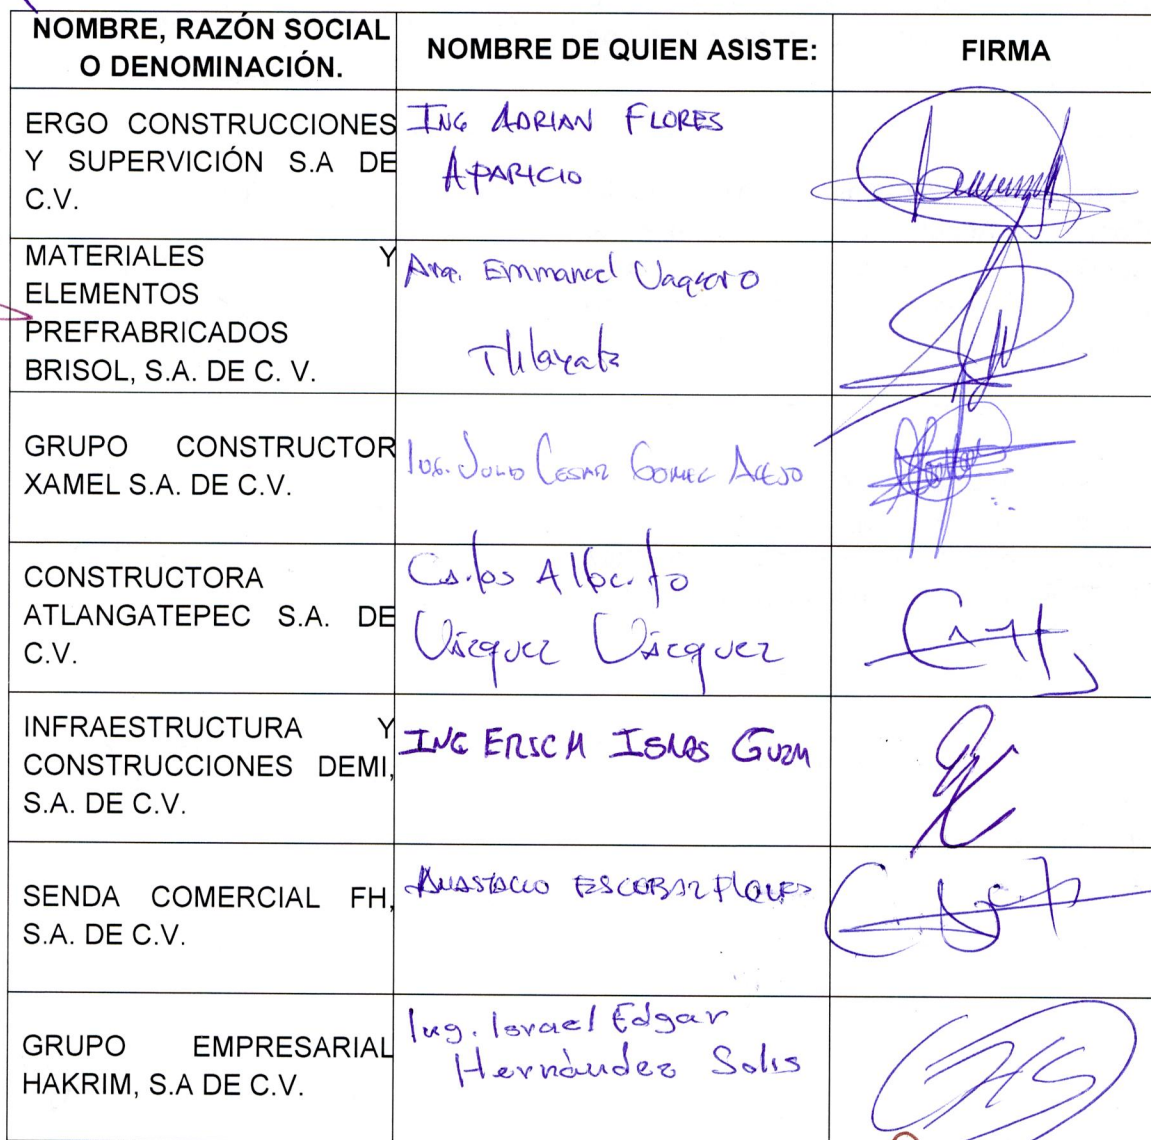 NOMBRE, RAZÓN SOCIAL
O DENOMINACIÓN.
NOMBRE DE QUIEN ASISTE:
FIRMA
ERGO CONSTRUCCIONES
Y SUPERVICIÓN S.A DE
C.V.
ING ADRIAN FLORES
APARICIO
MATERIALES Y
ELEMENTOS
PREFRABRICADOS
BRISOL, S.A. DE C. V.
Arq. Emmanuel Vaquero
GRUPO CONSTRUCTOR
XAMEL S.A. DE C.V.
Ing. Julio Cesar Gomez
CONSTRUCTORA
ATLANGATEPEC S.A. DE
C.V.
Carlos Alberto
Vázquez Vázquez
INFRAESTRUCTURA Y
CONSTRUCCIONES DEMI,
S.A. DE C.V.
ING ERICK ISLAS GUZM
SENDA COMERCIAL FH,
S.A. DE C.V.
ANASTACIO ESCOBAR FLORES
GRUPO EMPRESARIAL
HAKRIM, S.A DE C.V.
Ing. Israel Edgar
Hernández Solis